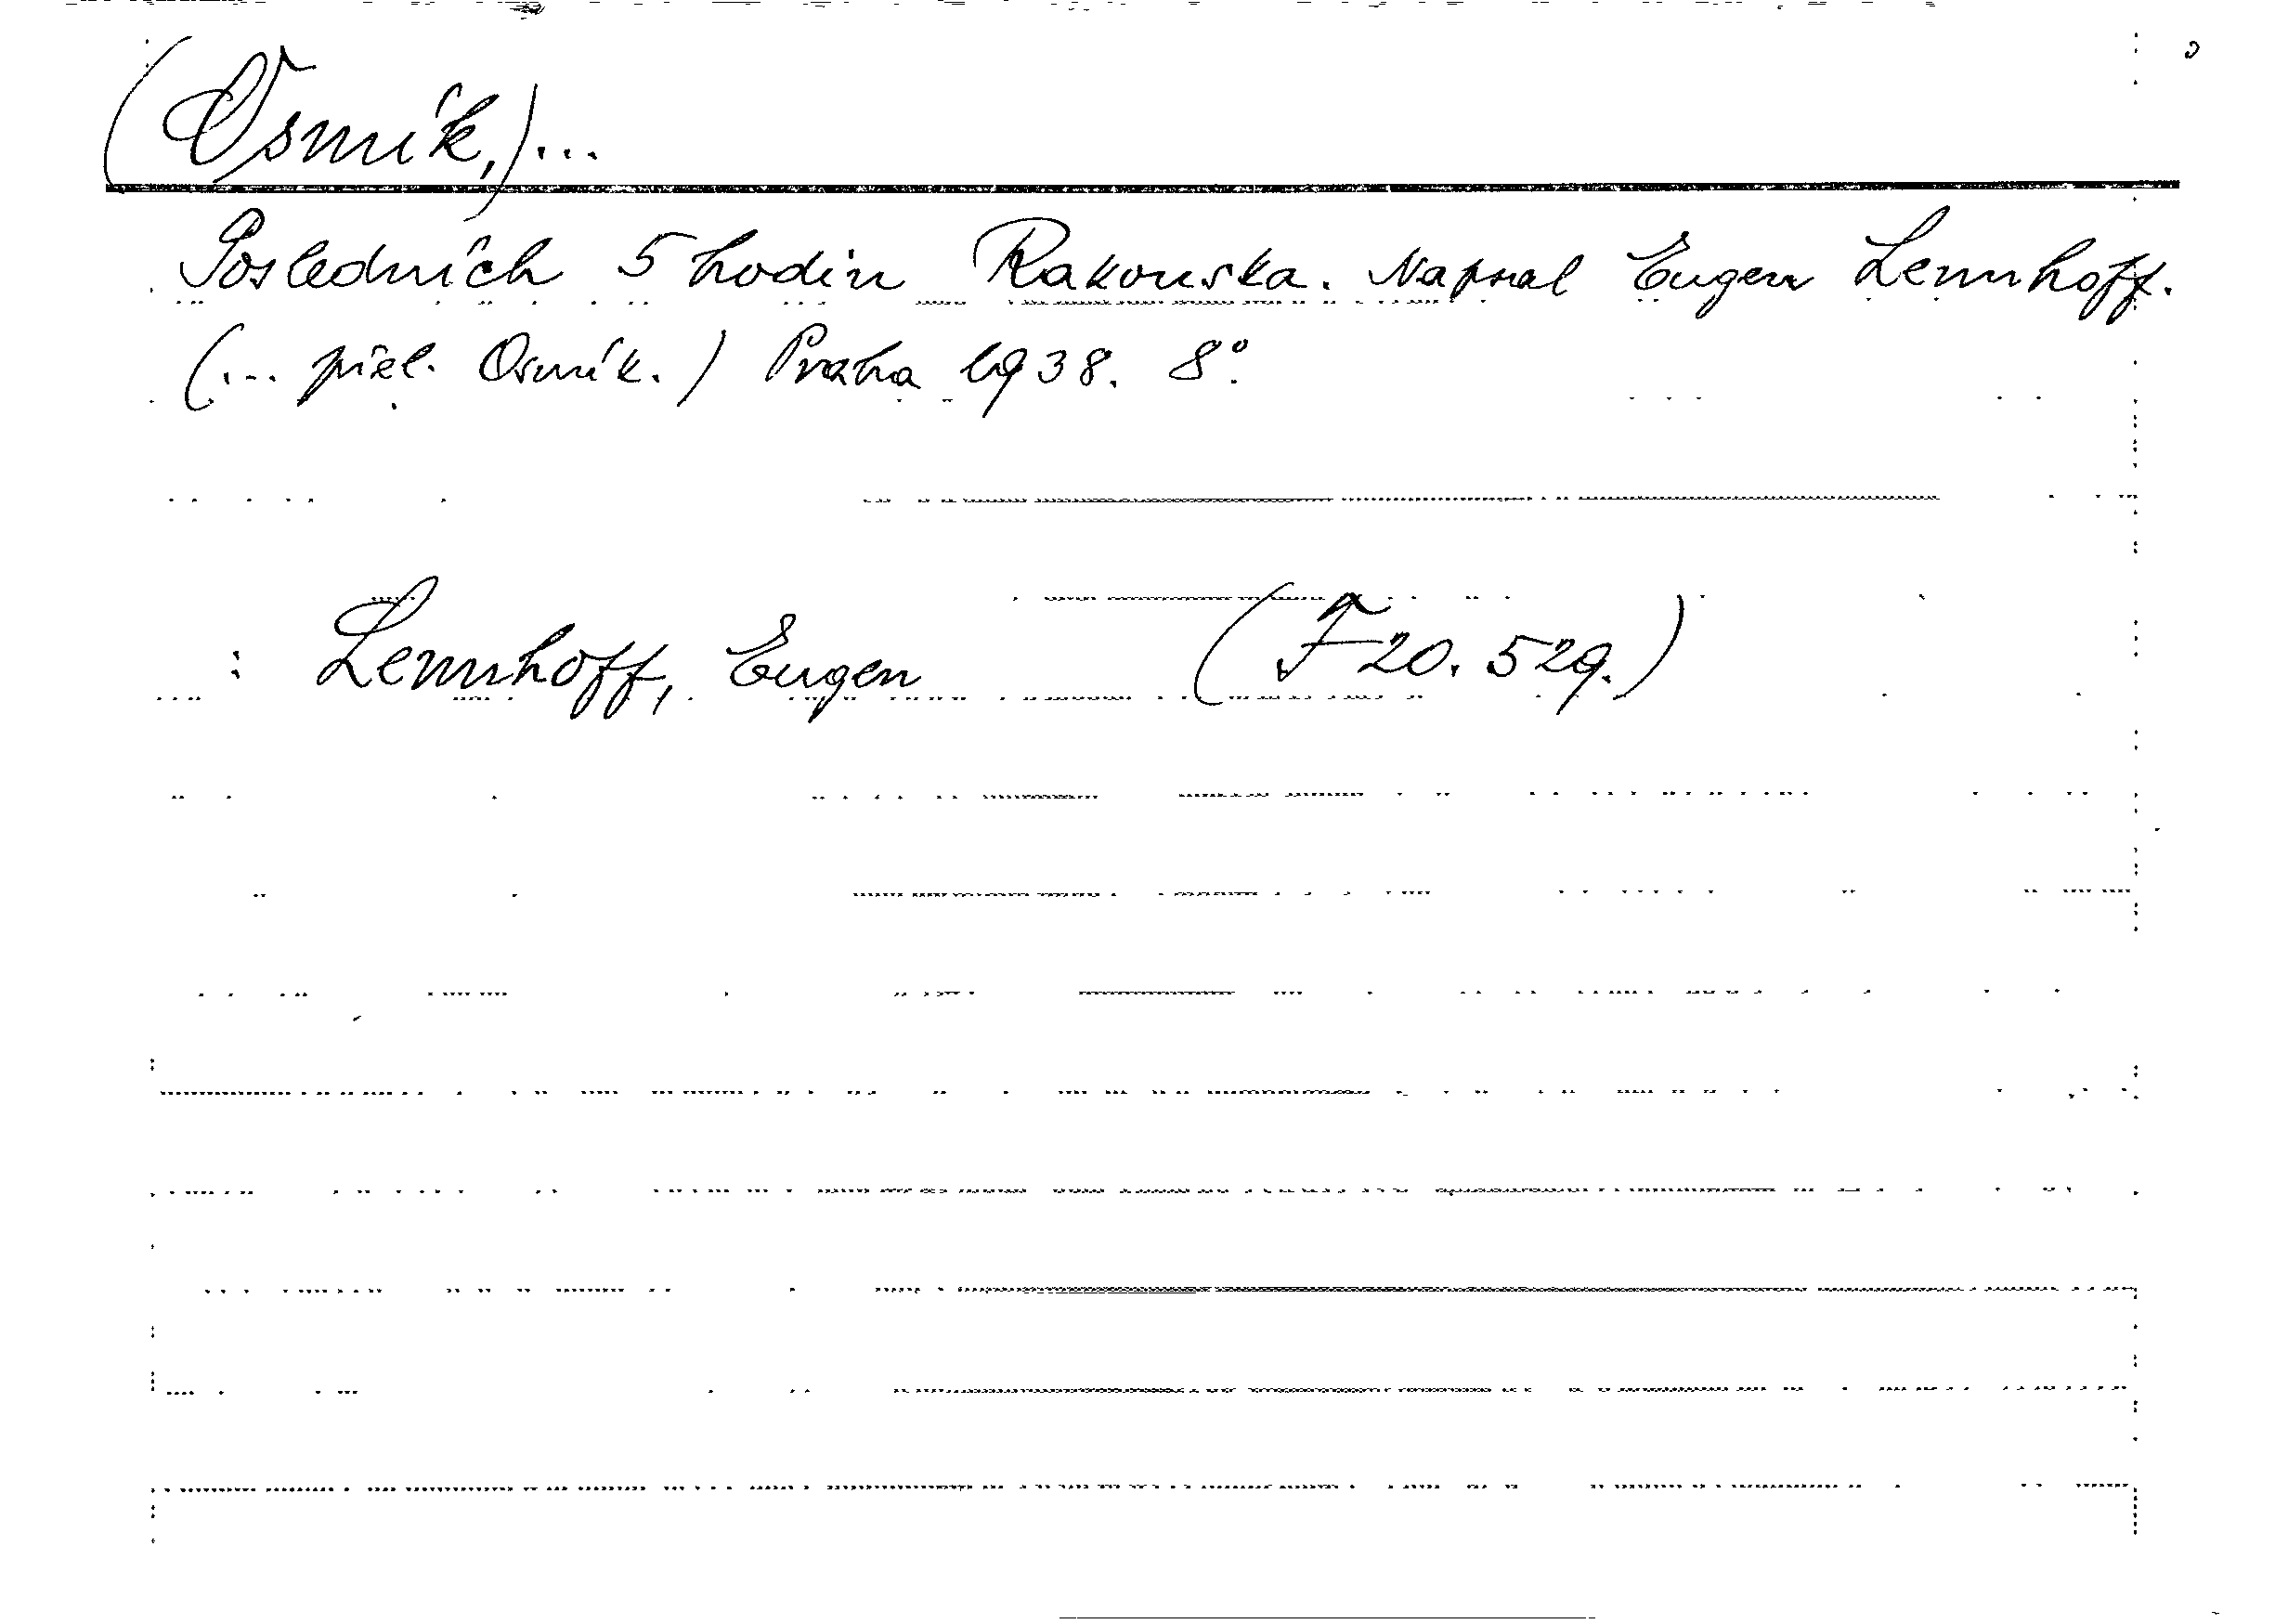 (Osmík,)...
Posledních 5 hodin Rakouska. Napsal Eugen Lennhoff.
(... přel. Osmík.) Praha 1938. 8°.
: Lennhoff, Eugen (F 20. 529.)